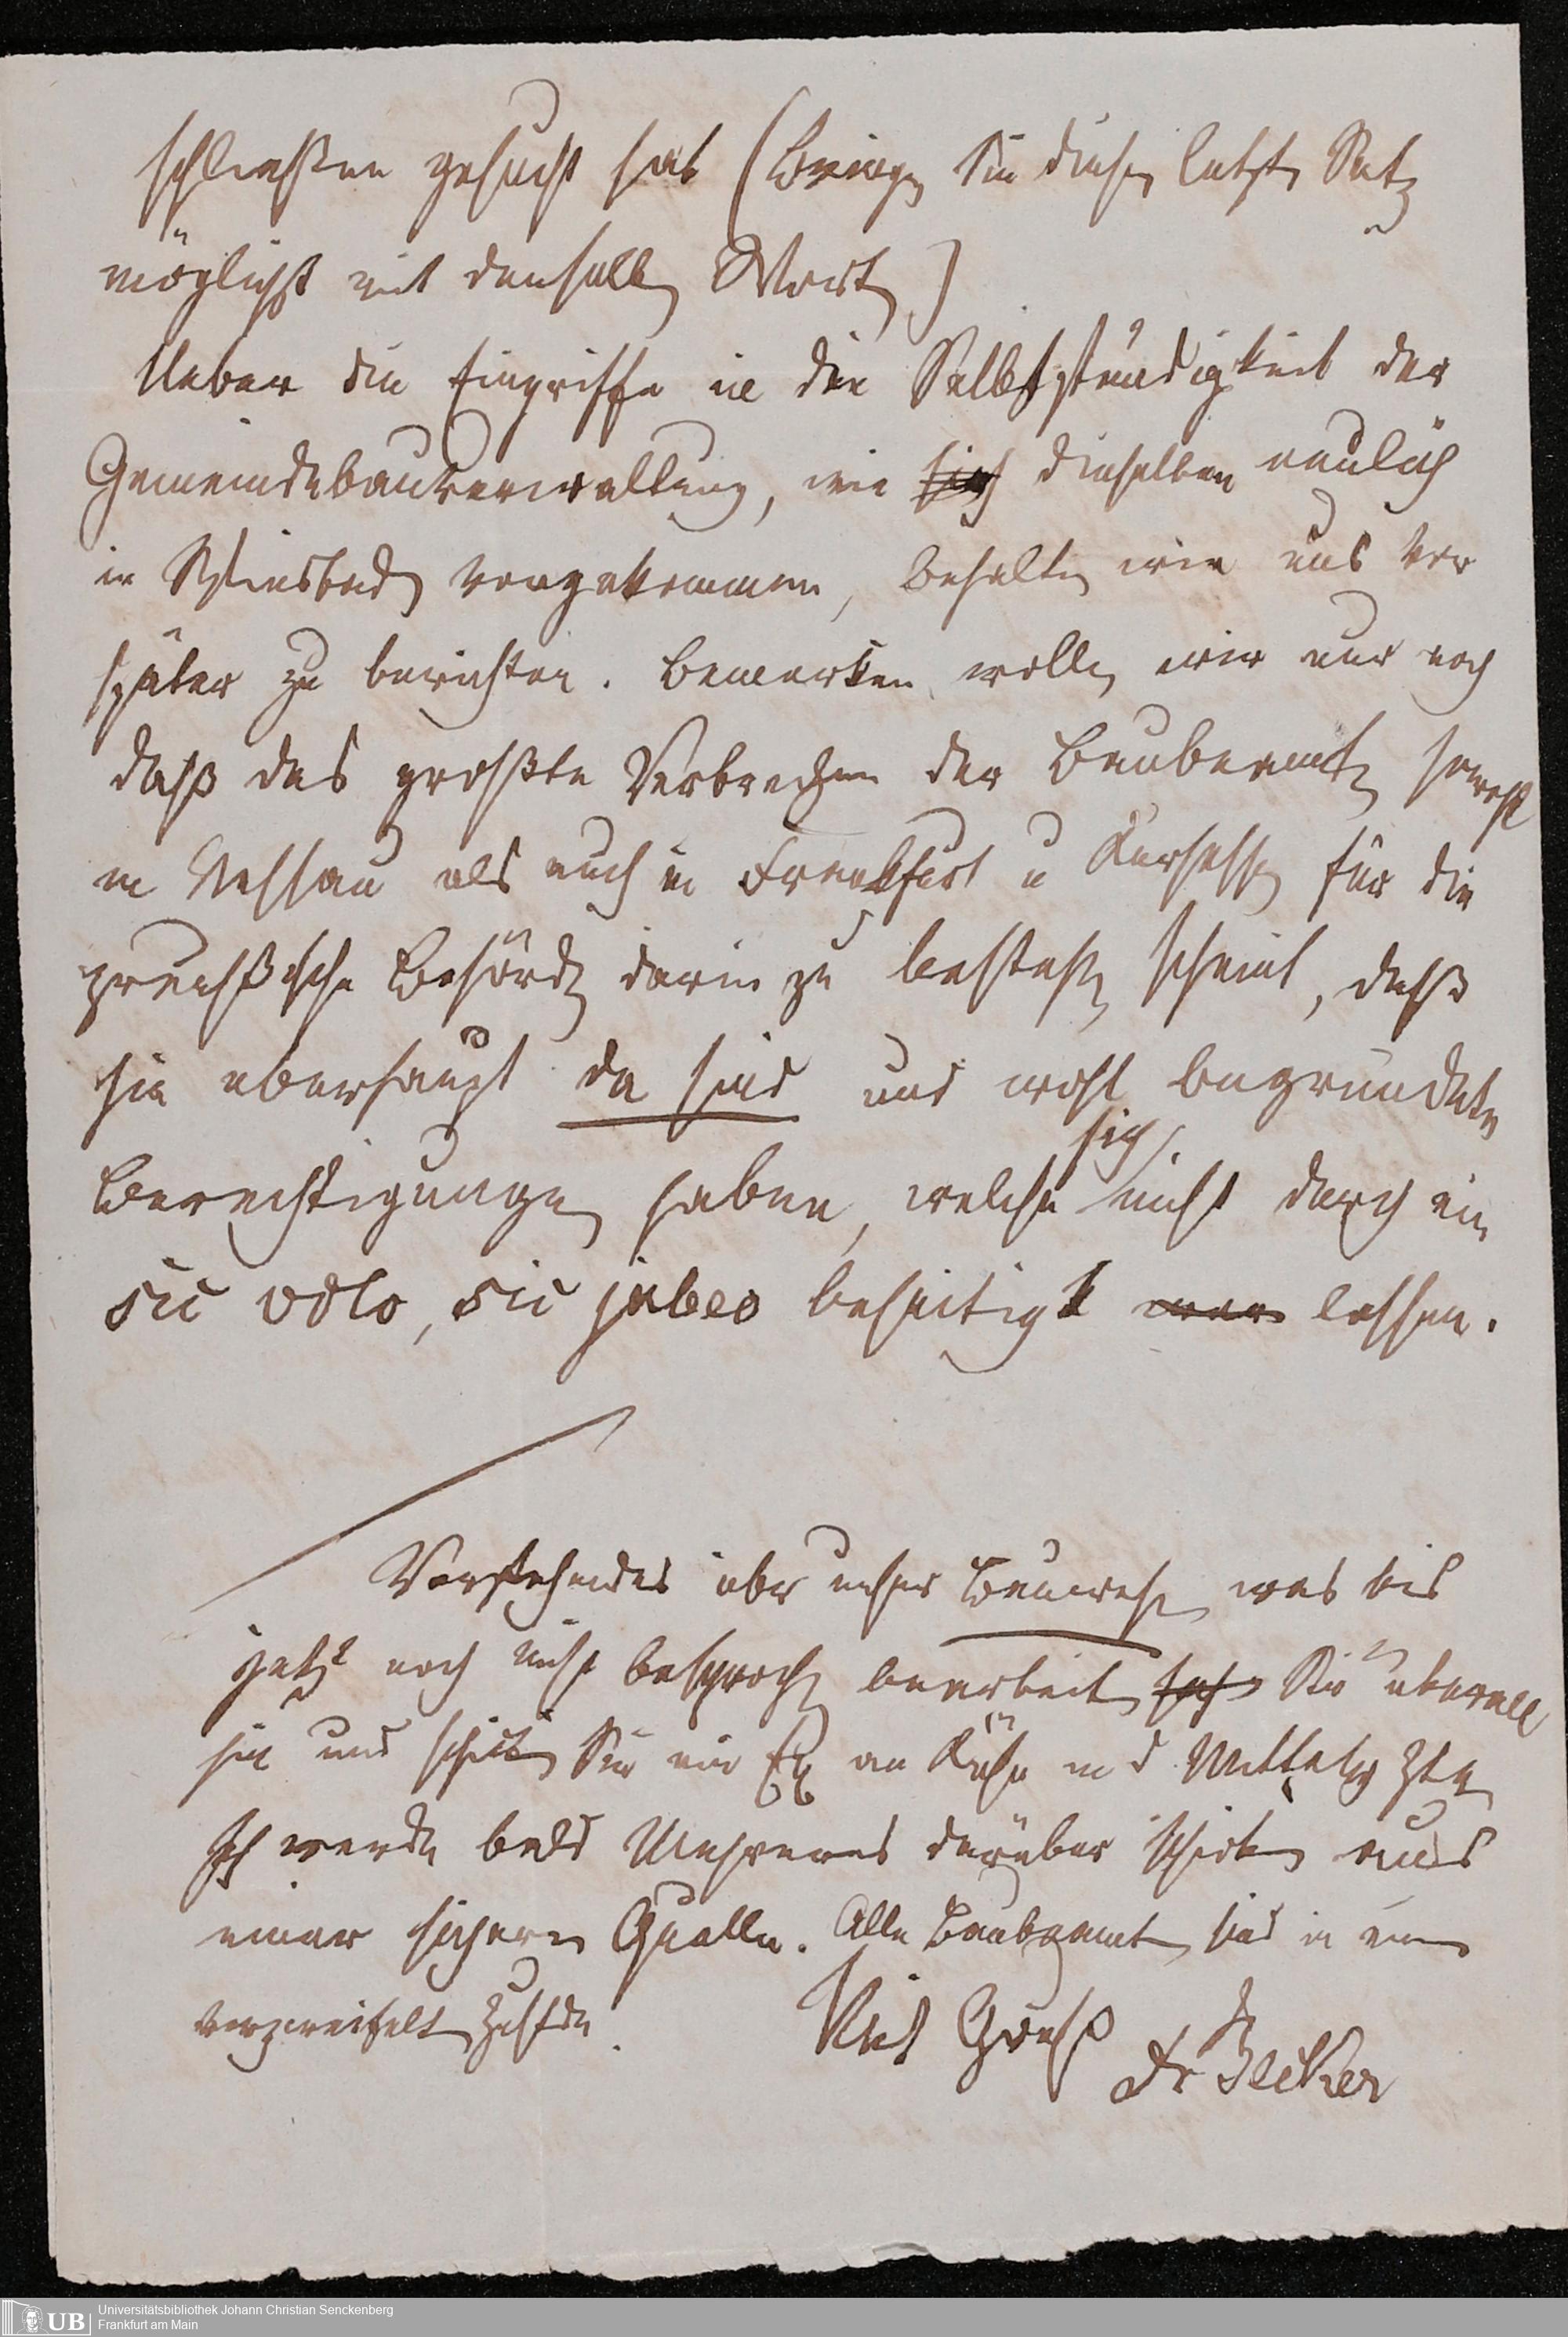 schließen gesucht hat (Bringen Sie diesen letzten Satz
möglichst mit denselben Worten)
Ueber die Eingriffe in die Selbstständigkeit der
Gemeindebauverwaltung, wie sich dieselben neulich
in Wiesbaden vorgekommen, behalten wir uns vor
später zu berichten. Bemerken wollen wir nur noch
daß das großte Verbrechen der Baubeamten sowohl
in Nassau als auch in Frankfurt u Kurhessen für die
preußische Behörden darin zu bestehen scheint, daß
sie uberhaupt da sind und wohl begründete
sich
Berechtigungen haben, welche nicht durch ein
sic volo, sic jubeo beseitigt wer lassen.
Vorstehendes über unser Bauwesen was bis
jetzt noch nicht besprochen bearbeiten Sie uberall
hin und schicken Sie ein Ex an in d
Ich werde bald Mehreres darüber schicken aus
einer sichern Quelle. Alle Baubeamten sind in einem
verzweifelten Zustande.
Mit Gruß
Dr Becker
UB
Universitätsbibliothek Johann Christian Senckenberg
Frankfurt am Main